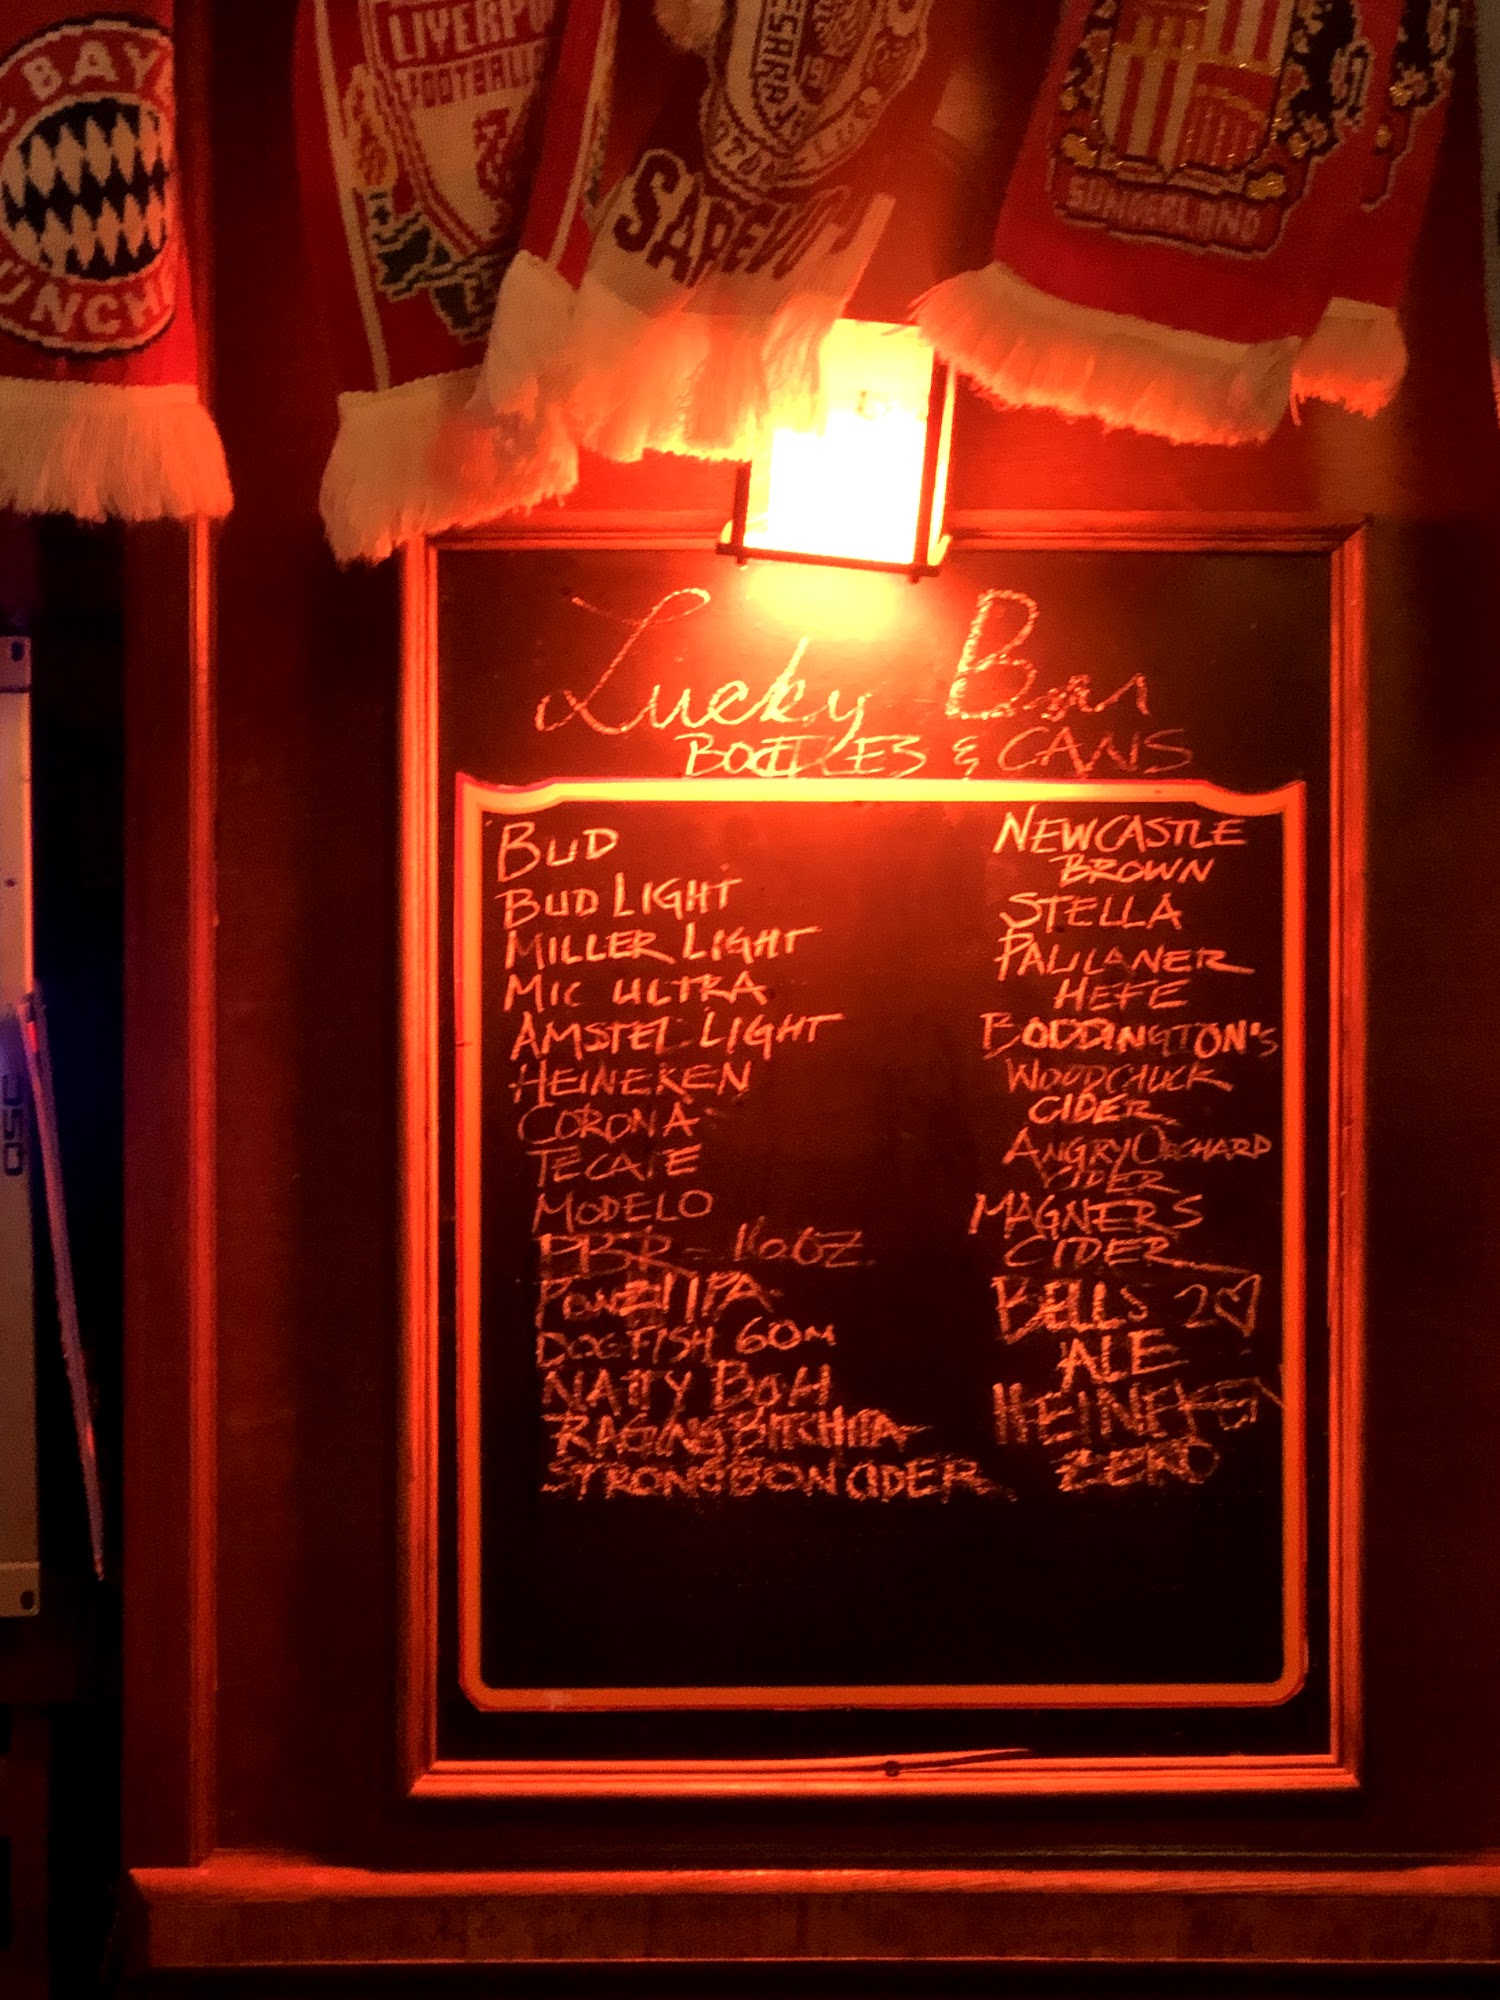 BAY
UNCH
LIVERPO
FOOTBALL
SARAJEVO
SUNDERLAND
QSC
Lucky Bar
BOTTLES & CANS
BUD
BUD LIGHT
MILLER LIGHT
MIC ULTRA
AMSTEL LIGHT
HEINEKEN
CORONA
TECATE
MODELO
PBR - 16OZ
POWER IPA
DOGFISH 60M
NATTY BOH
RAGING BITCH IPA
STRONGBOW CIDER
NEWCASTLE
BROWN
STELLA
PAULANER
HEFE
BODDINGTON'S
WOODCHUCK
CIDER
ANGRY ORCHARD
CIDER
MAGNERS
CIDER
BELLS 2♡
ALE
HEINEKEN
ZERO